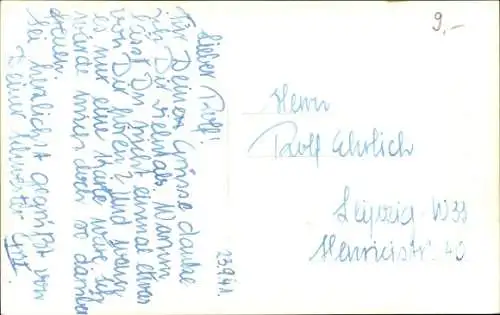 23.9.41.
Lieber Rolf!
Für Deinen Grüsse danke
ich Dir vielmals. Warum
lässt Du nicht einmal etwas
von Dir hören? Und wenn
es nur eine Karte wäre, ich
würde mich doch so darüber
freuen.
Sei herzlichst gegrüßt von
Deiner
9,-
Herrn
Rolf Ehrlich
Leipzig W33
Henricistr. 40